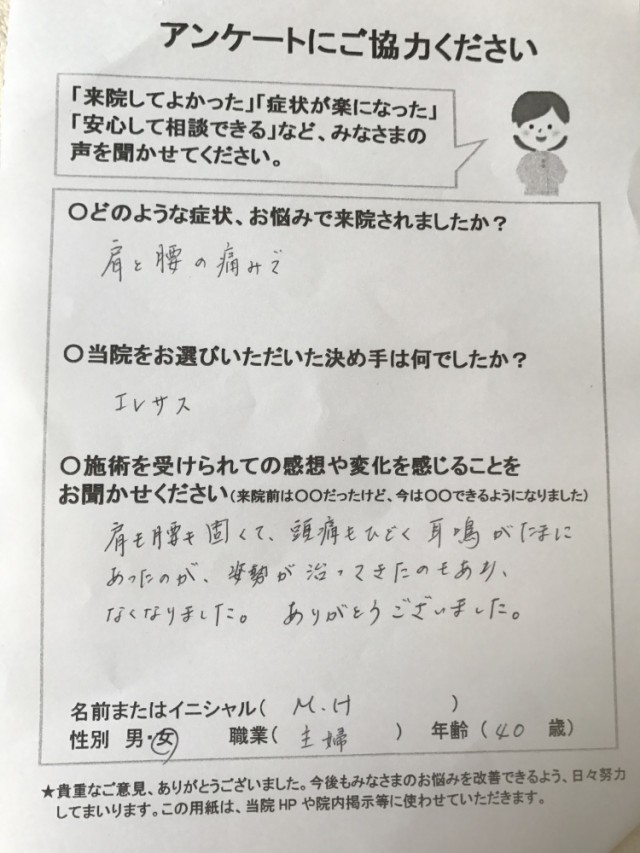 アンケートにご協力ください
「来院してよかった」「症状が楽になった」
「安心して相談できる」など、みなさまの
声を聞かせてください。
〇どのような症状、お悩みで来院されましたか？
肩と腰の痛みで
〇当院をお選びいただいた決め手は何でしたか？
エレサス
〇施術を受けられての感想や変化を感じることを
お聞かせください(来院前は〇〇だったけど、今は〇〇できるようになりました)
肩も腰も固くて、頭痛もひどく耳鳴がたまに
あったのが、姿勢が治ってきたのもあり、
なくなりました。 ありがとうございました。
名前またはイニシャル( M.H )
性別 男・女 職業( 主婦 ) 年齢(40 歳)
★貴重なご意見、ありがとうございました。今後もみなさまのお悩みを改善できるよう、日々努力
してまいります。この用紙は、当院HPや院内掲示等に使わせていただきます。